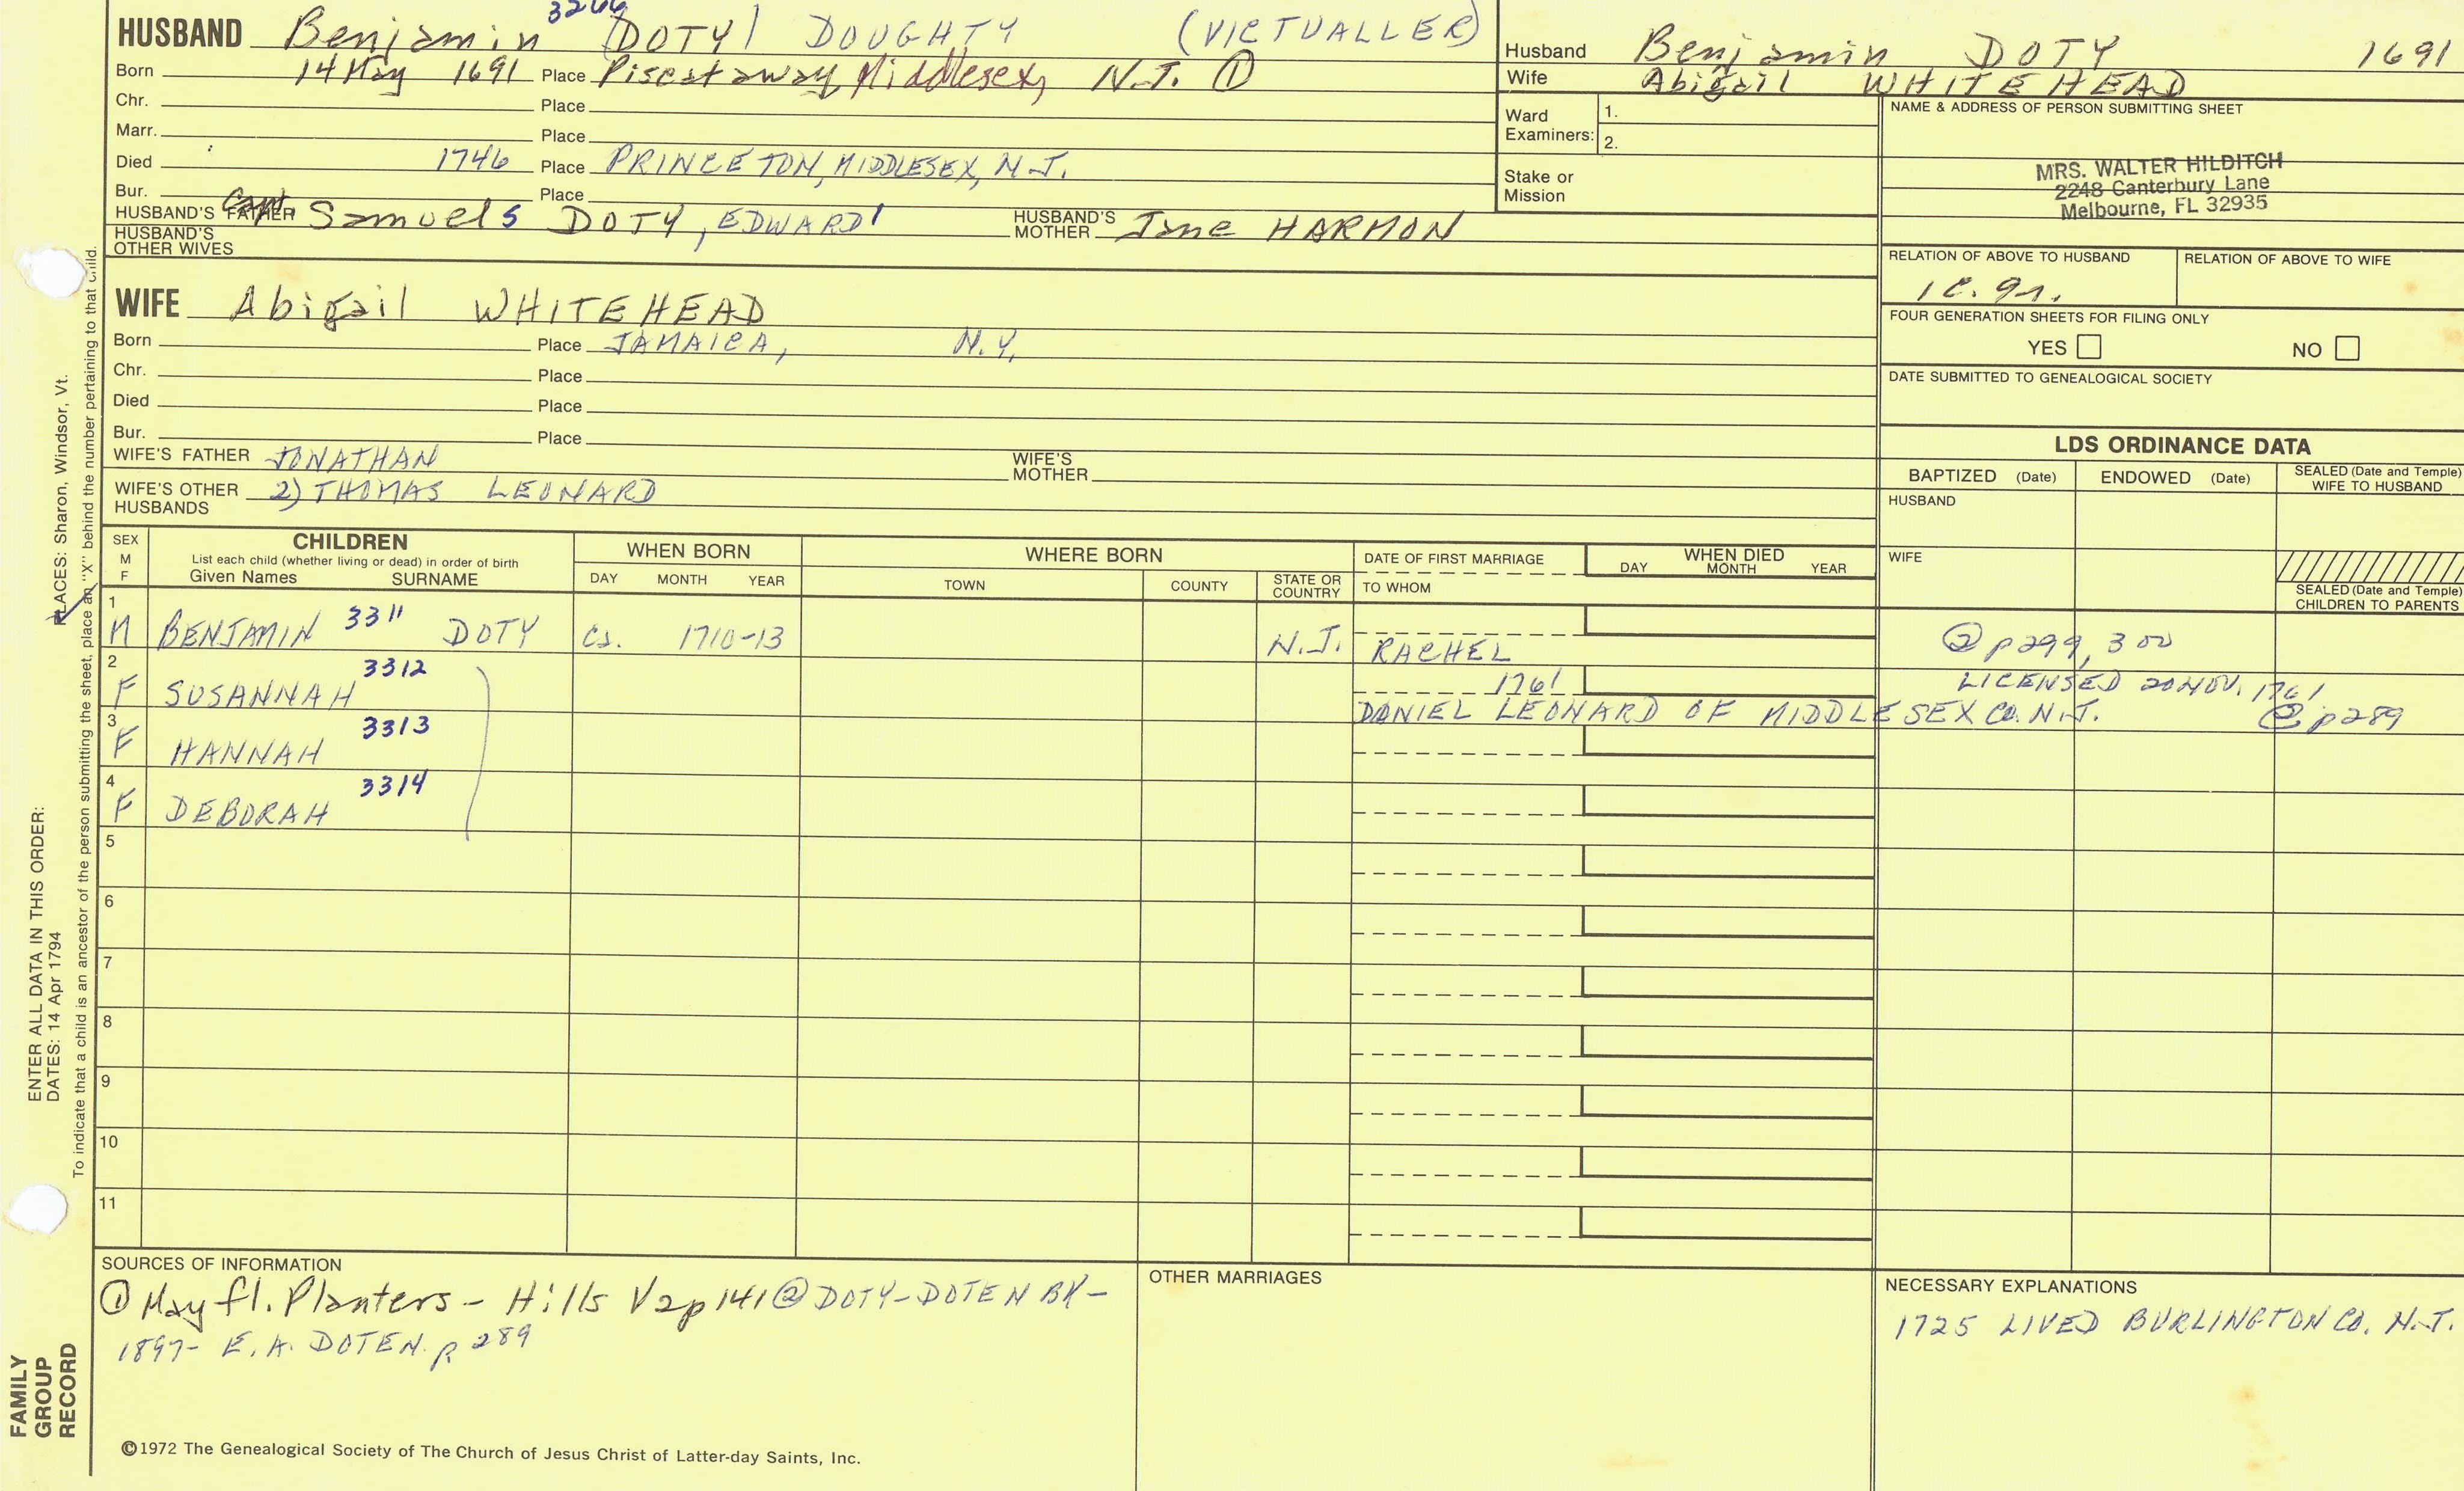 HUSBAND Benjamin (DOTY) DOUGHTY (VICTUALLER)
Born 14 May 1691 Place Piscataway, Middlesex, N.J. ①
Chr. Place
Marr. Place
Died 1746 Place PRINCETON, MIDDLESEX, N.J.
Bur. Place
HUSBAND'S FATHER Capt. Samuel5 DOTY, EDWARD1 HUSBAND'S MOTHER Jane HARMON
HUSBAND'S OTHER WIVES
Husband Benjamin DOTY 1691
Wife Abigail WHITEHEAD
Ward Examiners: 1.
2.
Stake or Mission
NAME & ADDRESS OF PERSON SUBMITTING SHEET
MRS. WALTER HILDITCH
2248 Canterbury Lane
Melbourne, FL 32935
RELATION OF ABOVE TO HUSBAND RELATION OF ABOVE TO WIFE
FOUR GENERATION SHEETS FOR FILING ONLY
YES NO
DATE SUBMITTED TO GENEALOGICAL SOCIETY
WIFE Abigail WHITEHEAD
Born Place JAMAICA, N.Y.
Chr. Place
Died Place
Bur. Place
WIFE'S FATHER JONATHAN WIFE'S MOTHER
WIFE'S OTHER HUSBANDS 2) THOMAS LEONARD
LDS ORDINANCE DATA
BAPTIZED (Date) ENDOWED (Date) SEALED (Date and Temple) WIFE TO HUSBAND
HUSBAND
WIFE
SEALED (Date and Temple) CHILDREN TO PARENTS
SEX M F
CHILDREN
List each child (whether living or dead) in order of birth
Given Names SURNAME
WHEN BORN
DAY MONTH YEAR
WHERE BORN
TOWN COUNTY STATE OR COUNTRY
DATE OF FIRST MARRIAGE
TO WHOM
WHEN DIED
DAY MONTH YEAR
1 M BENJAMIN 3311 DOTY ca. 1710-13 N.J. RACHEL ② p299, 300
2 F SUSANNAH 3312 1761 LICENSED 20 NOV. 1761
DANIEL LEONARD OF MIDDLESEX CO. N.J. ② p289
3 F HANNAH 3313
4 F DEBORAH 3314
5
6
7
8
9
10
11
SOURCES OF INFORMATION
① Mayfl. Planters - Hills V2p141 ② DOTY-DOTEN BK-
1897- E.A. DOTEN. p 289
OTHER MARRIAGES
NECESSARY EXPLANATIONS
1725 LIVED BURLINGTON CO. N.J.
©1972 The Genealogical Society of The Church of Jesus Christ of Latter-day Saints, Inc.
FAMILY GROUP RECORD
ENTER ALL DATA IN THIS ORDER:
DATES: 14 Apr 1794
PLACES: Sharon, Windsor, Vt.
To indicate that a child is an ancestor of the person submitting the sheet, place an "X" behind the number pertaining to that child.